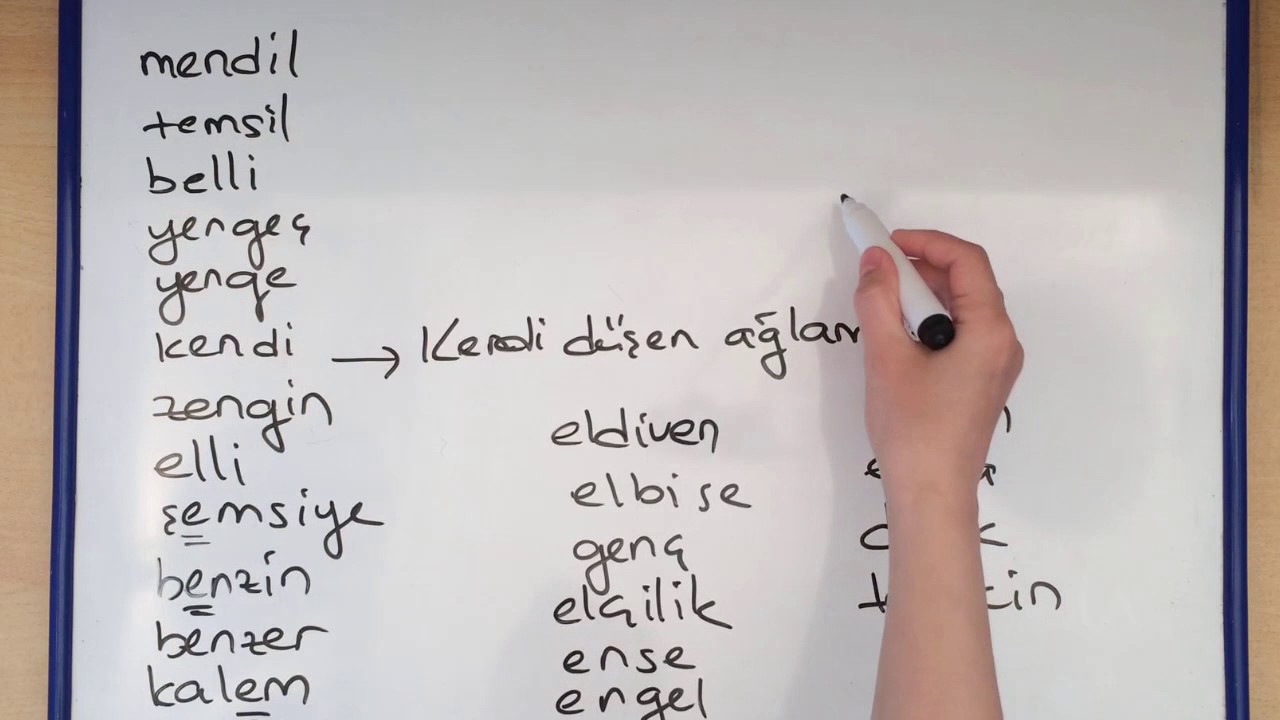 mendil
temsil
belli
yengeç
yenge
kendi → Kendi düşen ağlam
zengin
elli
şemsiye
benzin
benzer
kalem
eldiven
elbise
genç
elçilik
ense
engel